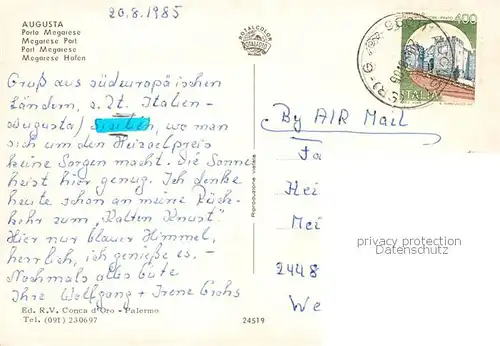 20.8.1985
AUGUSTA
Porto Megarese
Megarese Port
Port Megarese
Megarese Hafen
ROTALCOLOR
ROTALFOTO
400
ITALIA
Gruß aus südeuropäischen
Ländern, z. Zt. Italien-
Augusta) Sizilien, wo man
sich um den Heizoelpreis
keine Sorgen macht. Die Sonne
heist hier genug. Ich denke
heute schon an meine Rück-
kehr zum "Kalten Knust".
Hier nur blauer Himmel,
herrlich, ich genieße es. -
Nochmals alles Gute
Ihre Wolfgang + Irene
By AIR Mail
Fa
Hei
Mei
2448
We
Riproduzione vietata
privacy protection
Datenschutz
Ed. R.V. Conca d'Oro - Palermo
Tel. (091) 230697
24519